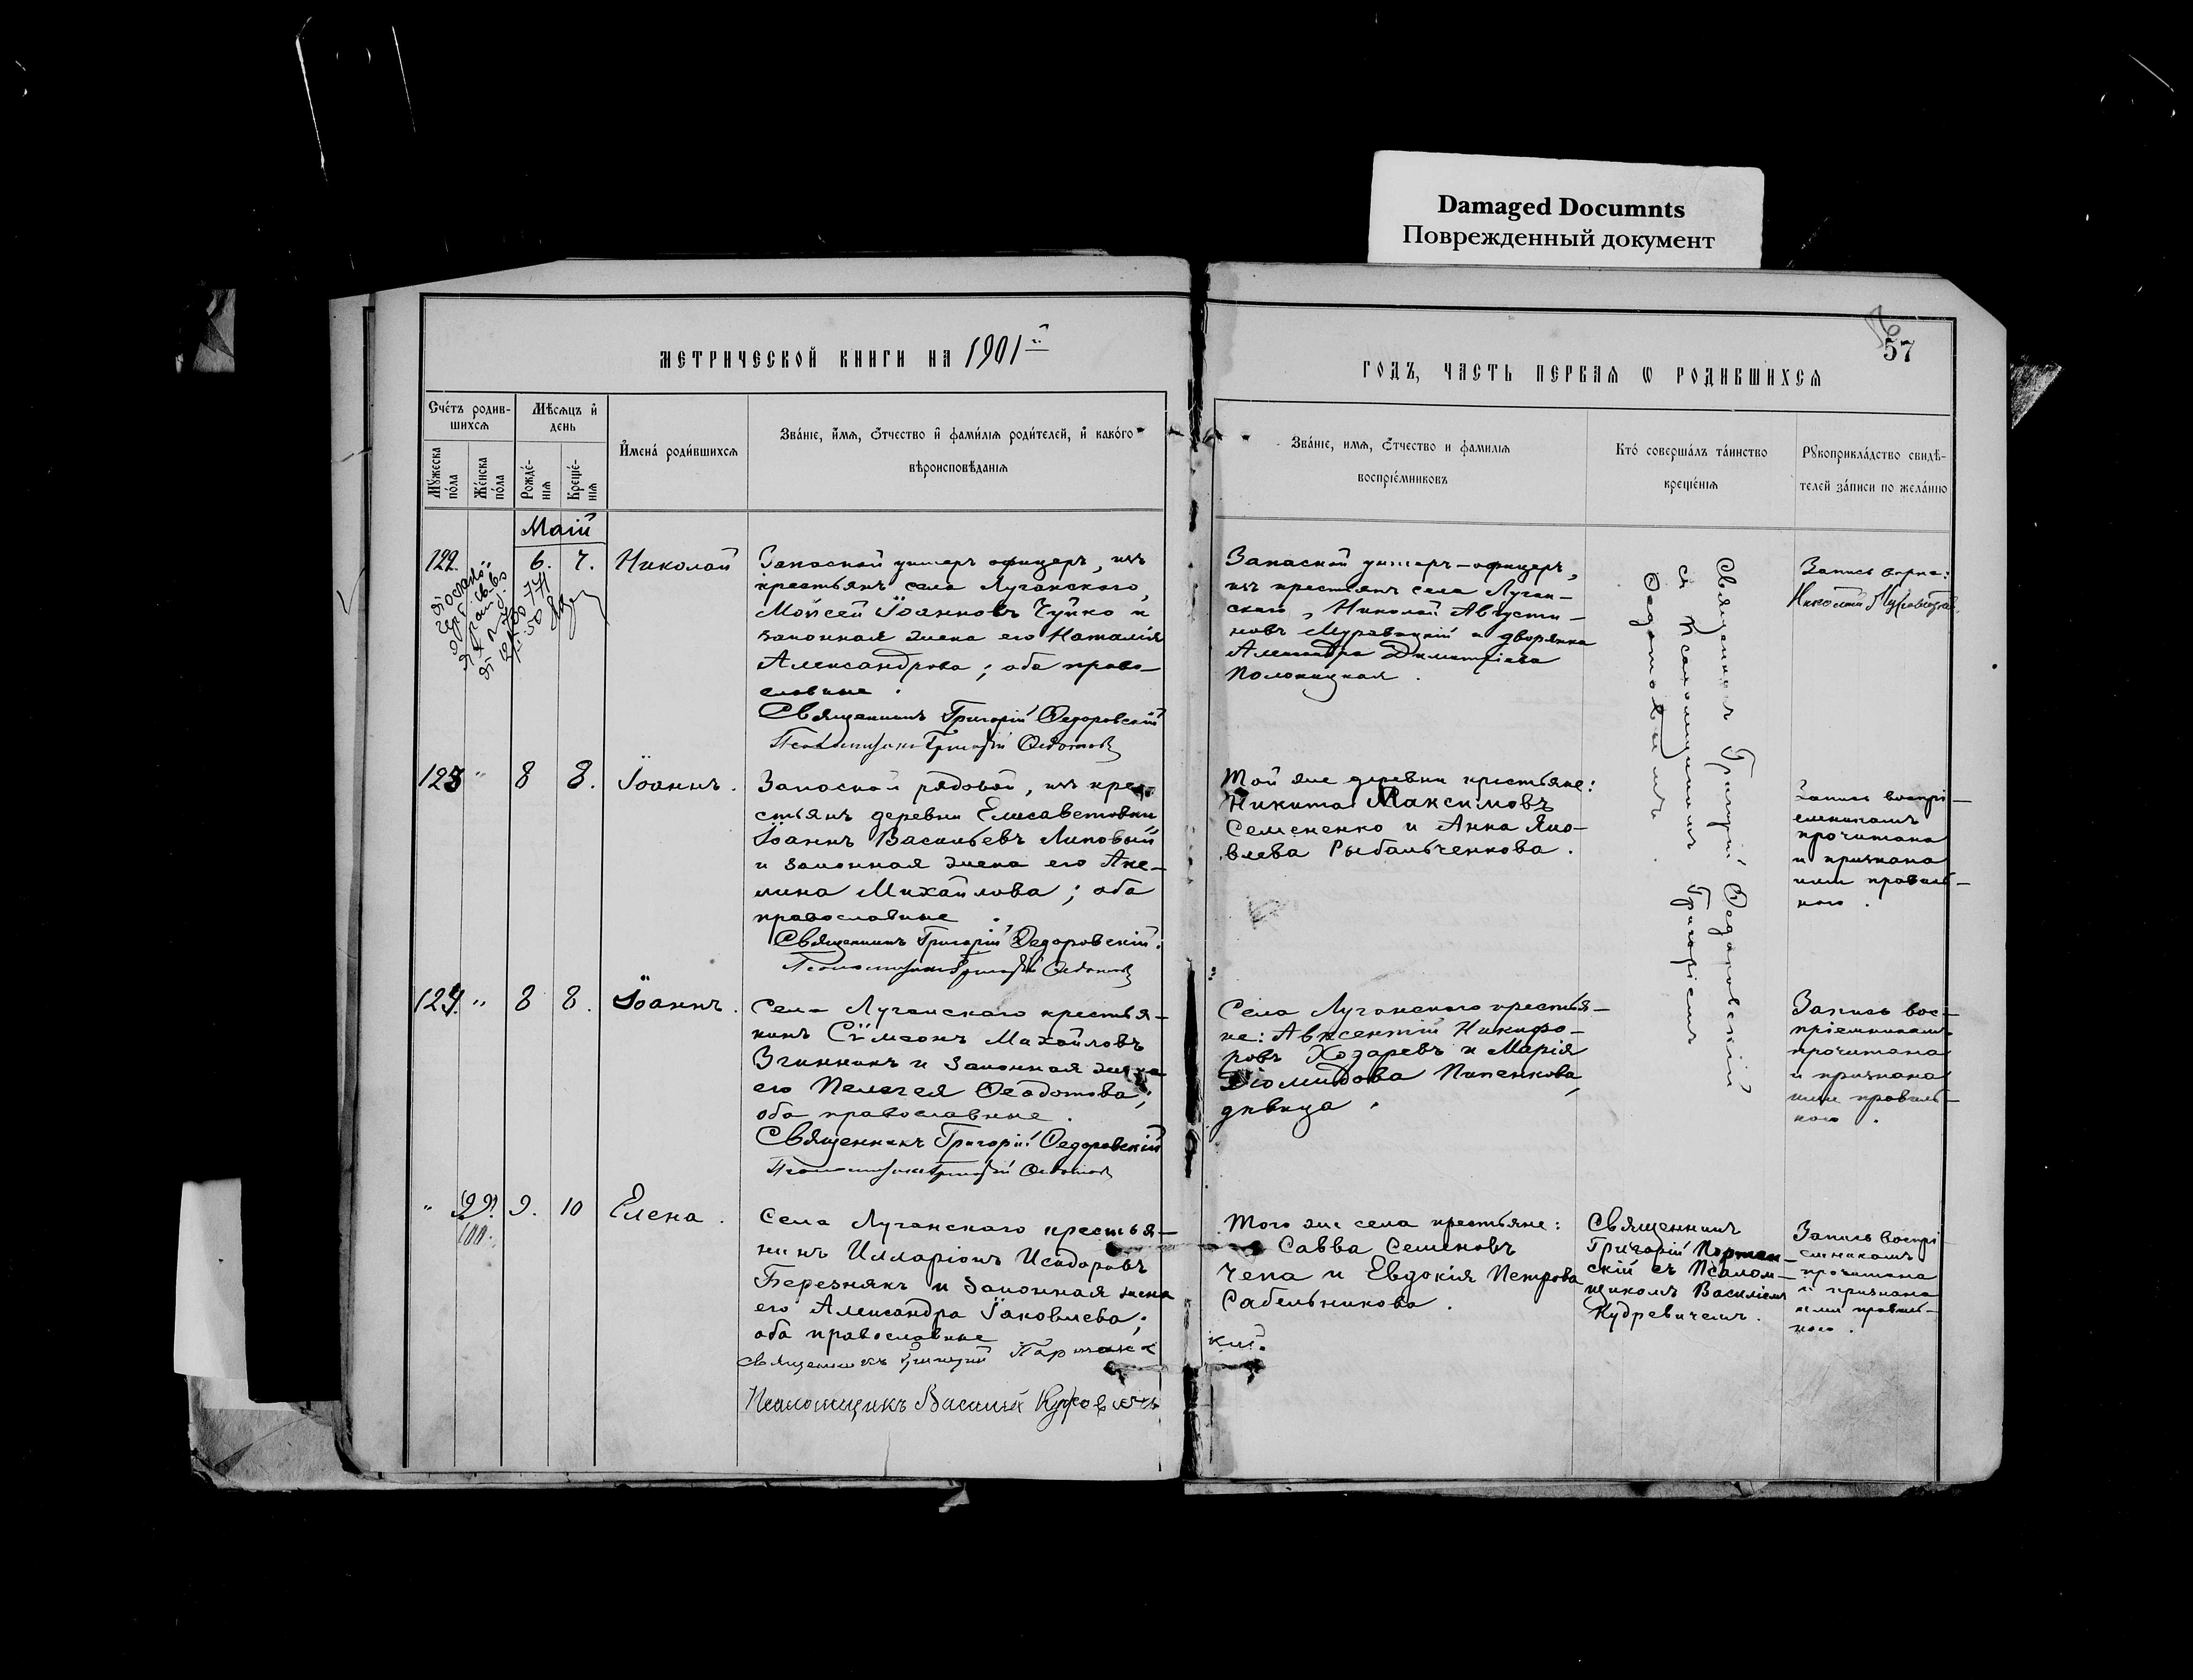 Damaged Documnts
Поврежденный документ
57
МЕТРИЧЕСКОЙ КНИГИ НА 1901й
ГОДЪ, ЧАСТЬ ПЕРВАЯ Ѡ РОДИВШИХСЯ
Счéтъ родив-
шихся
Мѣсяцъ и
день
Мужеска
пóла
Жéнска
пóла
Рождé-
нія
Крещé-
нія
Именá родившихся
Звáніе, имя, Óтчество и фамилія родителей, и какóго
вѣроисповѣданія
Звáніе, имя, Óтчество и фамилія
воспріéмниковъ
Ктó совершáлъ тáинство
крещéнія
Рукоприклáдство свидѣ-
телей зáписи по желáнію
Маій
122. 6. 7. Николай
Запасной унтеръ офицеръ, изъ
крестьянъ села Луганскаго,
Мойсей Іоанновъ Чуйко и
законная жена его Наталія
Александрова; оба право-
славные.
Священникъ Григорій Ѳедоровскій
Псаломщикъ Григорій Ѳедотовъ
Запасной унтеръ-офицеръ,
изъ крестьянъ села Луган-
скаго, Николай Августи-
новъ Муравицкій и дворянка
Александра Димитріева
Полоницкая.
Священникъ Григорій Ѳедоровскій
съ Псаломщикомъ Григоріемъ
Ѳедотовымъ.
Запись вѣрна:
Николай
123 " 8 8. Іоаннъ.
Запасной рядовой, изъ кре-
стьянъ деревни Елисаветовки
Іоаннъ Васильевъ Липовый
и законная жена его Аке-
лина Михайлова; оба
православные.
Священникъ Григорій Ѳедоровскій.
Псаломщикъ Григорій Ѳедотовъ
Той же деревни крестьяне:
Никита Максимовъ
Семененко и Анна Яко-
влева Рыбальченкова.
Запись воспрі-
емникамъ
прочитана
и признана
ими правиль-
ною.
124. " 8 8. Іоаннъ.
Села Луганскаго крестья-
нинъ Сѵмеонъ Михайловъ
и законная жена
его Пелагея Ѳеодотова;
оба православные.
Священникъ Григорій Ѳедоровскій
Псаломщикъ Григорій Ѳедотовъ
Села Луганскаго крестья-
не: Авксентій Никифо-
ровъ Хозаревъ и Марія
Діомидова Папенкова,
дѣвица.
Запись вос-
пріемникамъ
прочитана
и признана
ими правиль-
ною.
" 99. 9. 10 Елена.
100.
Села Луганскаго крестья-
нинъ Илларіонъ Исидоровъ
Березнякъ и законная жена
его Александра Іаковлева;
оба православные
Священникъ Григорій Портанс
кій.
Псаломщикъ Василій Кудревичъ
Того же села крестьяне:
Савва Семеновъ
Чепа и Евдокія Петрова
Сабельникова.
Священникъ
Григорій Портан-
скій съ Псалом-
щикомъ Василіемъ
Кудревичемъ.
Запись воспрі
емникамъ
прочитана
и признана
ими правиль-
ною.